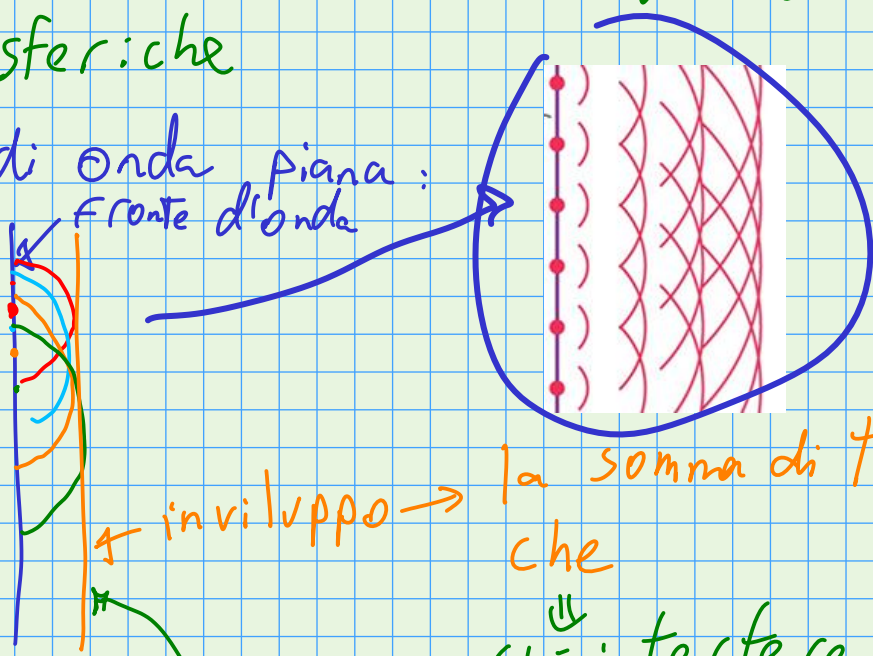 sferiche
di onda piana :
fronte d'onda
inviluppo → la somma di
che